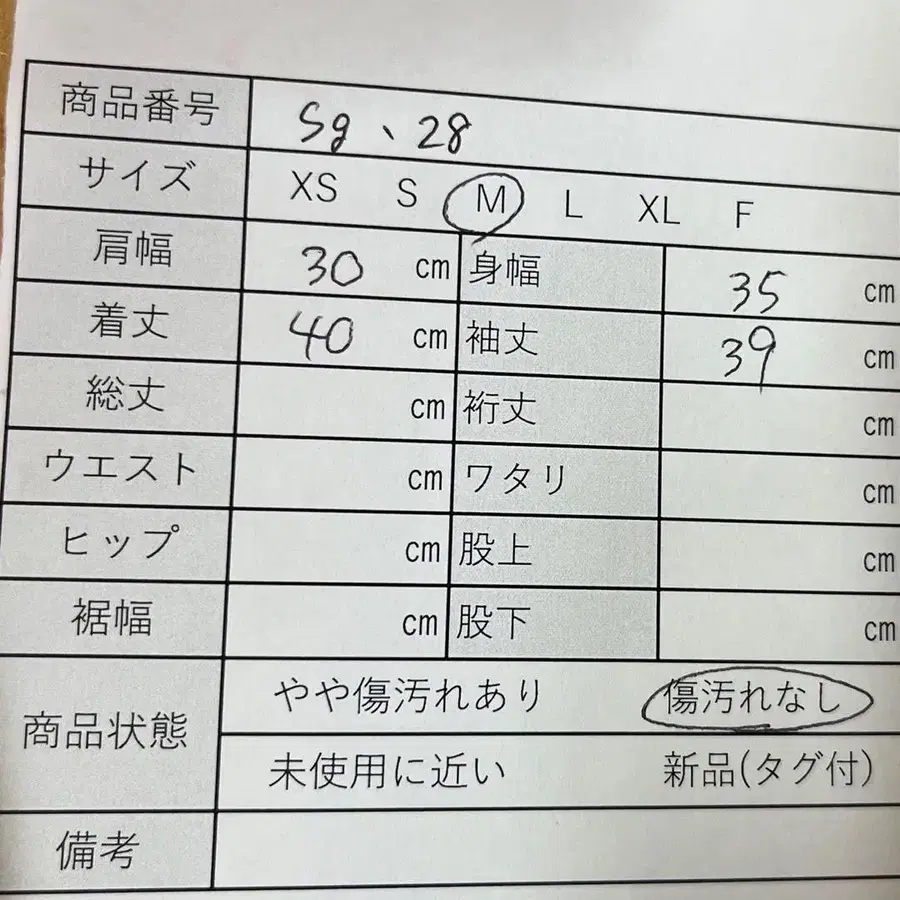 商品番号 Sg、28
サイズ XS S M L XL F
肩幅 30 cm 身幅 35 cm
着丈 40 cm 袖丈 39 cm
総丈 cm 裄丈 cm
ウエスト cm ワタリ cm
ヒップ cm 股上 cm
裾幅 cm 股下 cm
商品状態 やや傷汚れあり 傷汚れなし
未使用に近い 新品(タグ付)
備考